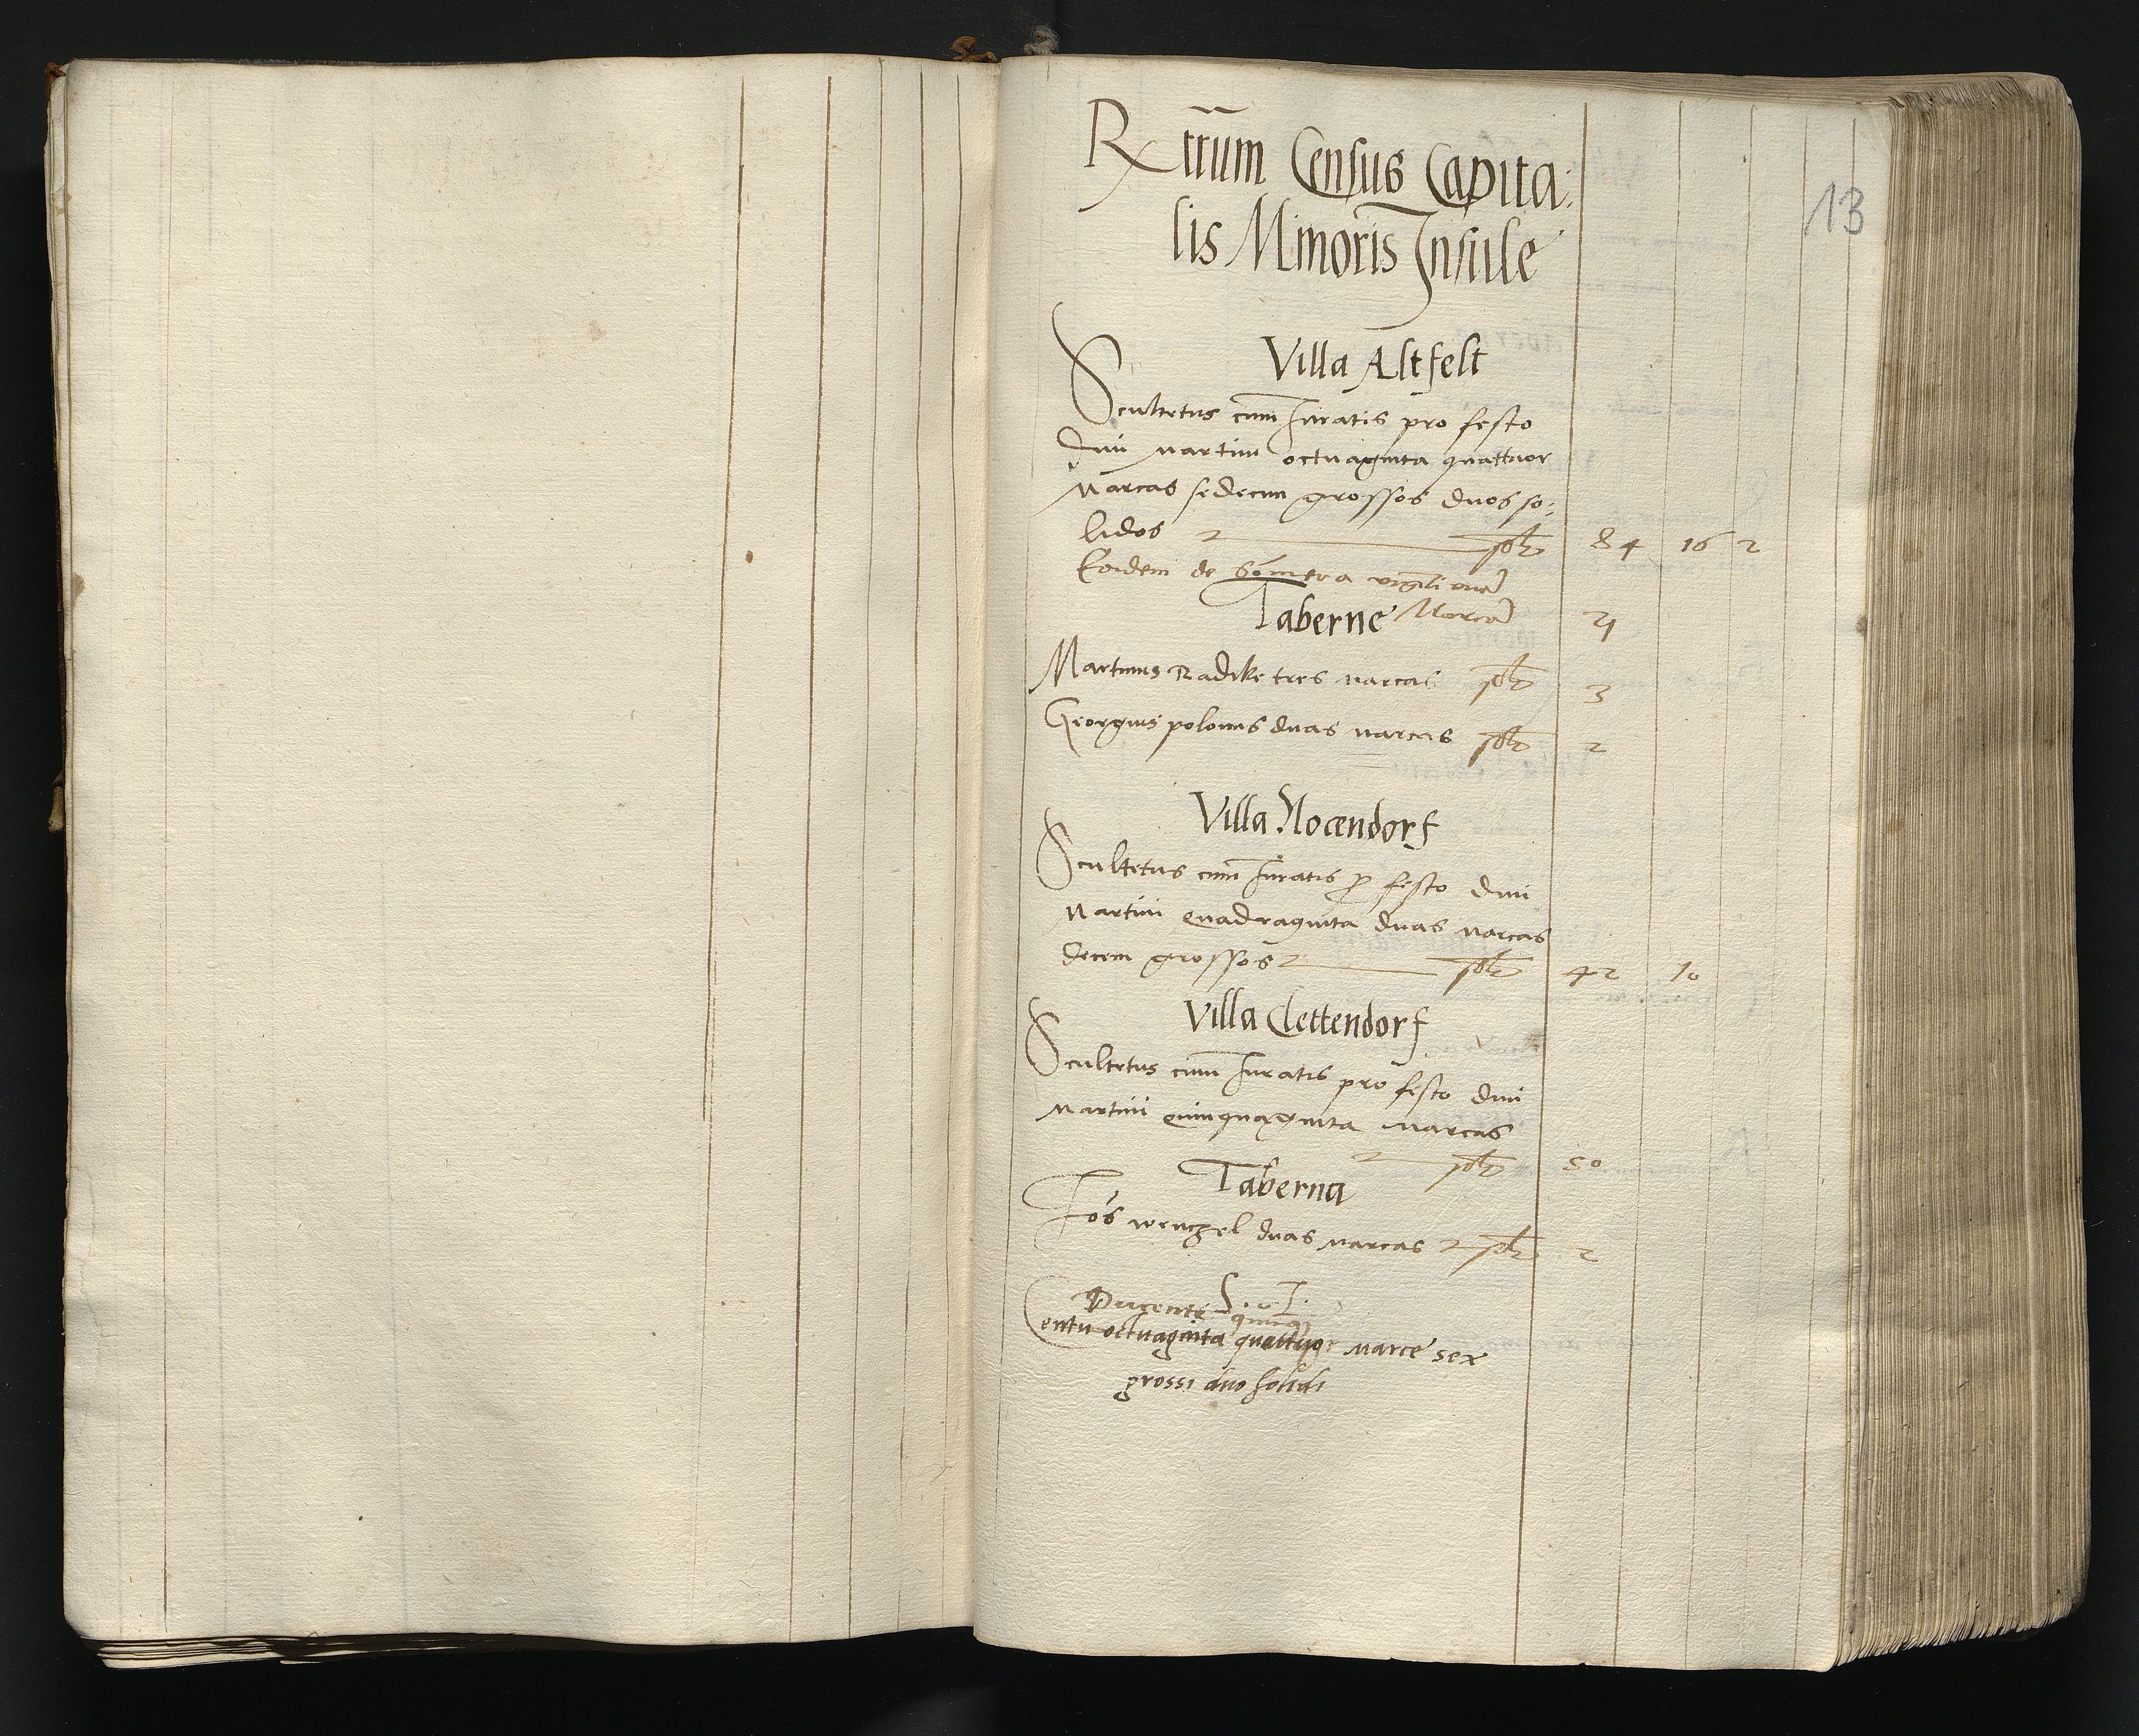 13
Rxtrum Census Capita:
lis Minoris Insule
Villa Altfelt
Scultetus cum Iuratis pro festo
divi Martini octuaginta quattuor
Marcas sedecim grossos duos so:
lidos 84 16 2
Eidem de
Marcas 21
Taberne
Martinus Radike tres marcas 3
Georgius polonus duas marcas 2
Villa Nocendorf
Scultetus cum Iuratis p festo divi
Martini quadraginta duas marcas
decem grossos 42 10
Villa Clettendorf
Scultetus cum Iuratis pro festo divi
Martini quinquaginta Marcas
50
Taberna
Ios wenczel duas marcas 2
S. v. I.
Ducente quinq
Centu octuaginta quattuor marce sex
grossi duo solidi